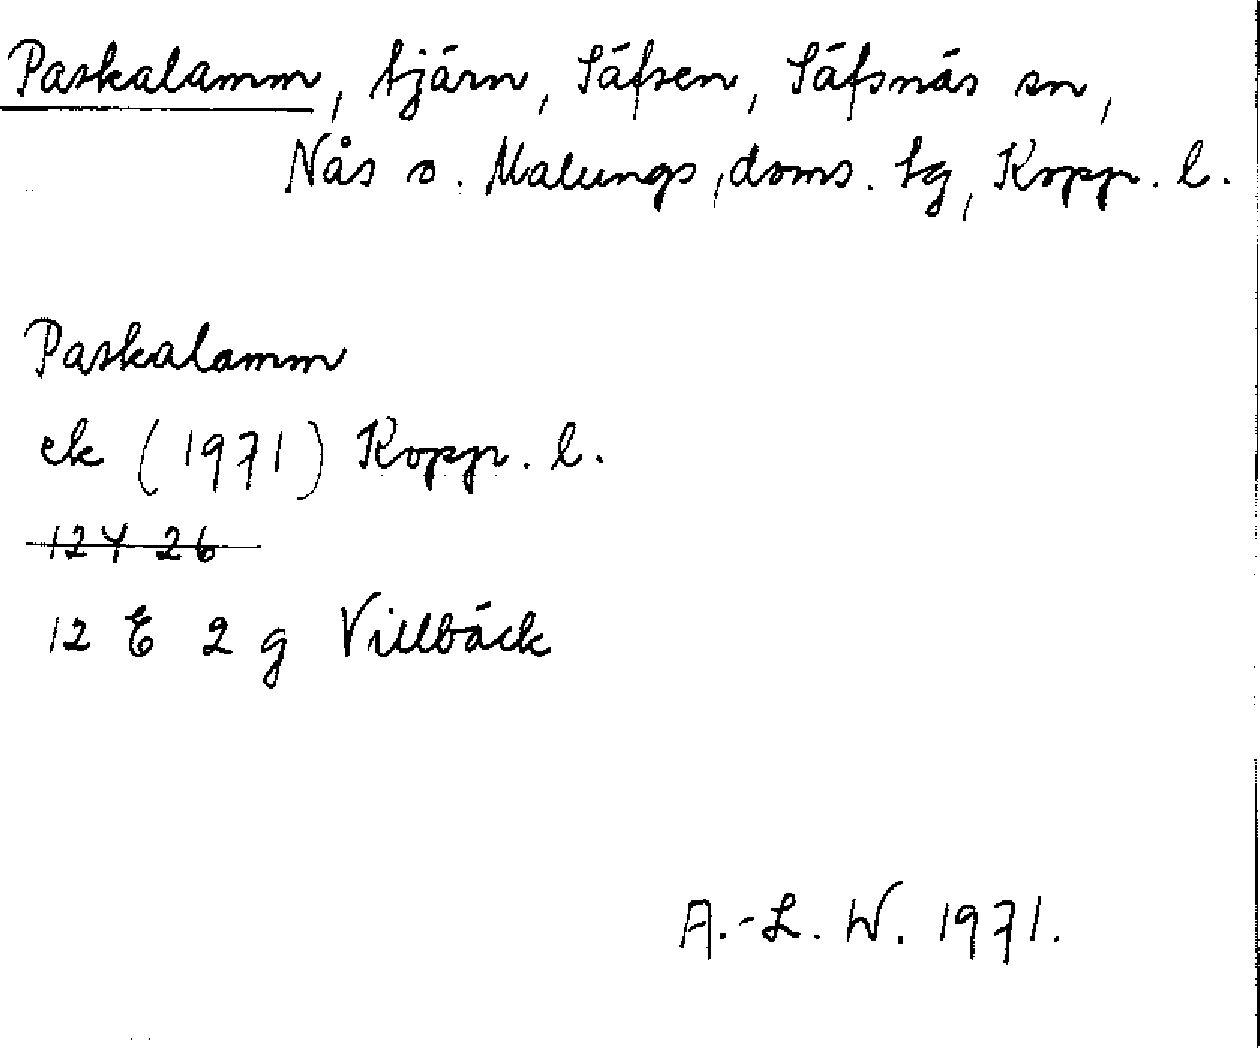 Paskalamm, tjärn, Säfsen, Säfsnäs sn,
Nås o. Malungs, doms. tg, Kopp. l.
Paskalamm
ek (1971) Kopp. l.
12Y 26
12 E 2 g Villbäck
A.-L. W. 1971.